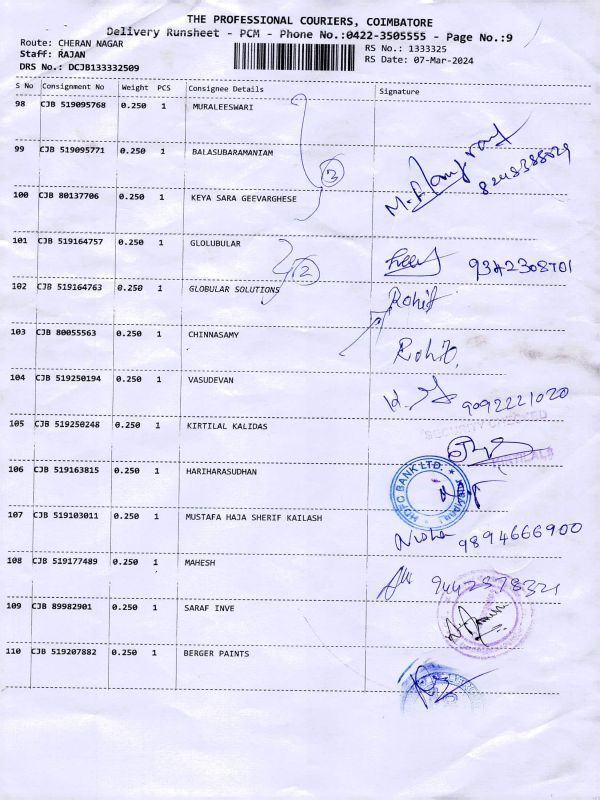 THE PROFESSIONAL COURIERS, COIMBATORE
Delivery Runsheet - PCM - Phone No.:0422-3505555 - Page No.:9
Route: CHERAN NAGAR
RS No.: 1333325
Staff: RAJAN
RS Date: 07-Mar-2024
DRS No.: DCJB133332509
S No Consignment No Weight PCS Consignee Details Signature
98 CJB 519095768 0.250 1 MURALEESWARI
99 CJB 519095771 0.250 1 BALASUBARAMANIAM
3
8248388029
100 CJB 80137706 0.250 1 KEYA SARA GEEVARGHESE
101 CJB 519164757 0.250 1 GLOLUBULAR
2
9342308701
102 CJB 519164763 0.250 1 GLOBULAR SOLUTIONS
Rohit
103 CJB 80055563 0.250 1 CHINNASAMY
Rohit
104 CJB 519250194 0.250 1 VASUDEVAN
9092221020
105 CJB 519250248 0.250 1 KIRTILAL KALIDAS
SECURITY CHECKED
106 CJB 519163815 0.250 1 HARIHARASUDHAN
HDFC BANK LTD.
107 CJB 519103011 0.250 1 MUSTAFA HAJA SHERIF KAILASH
Nisha 9894666900
108 CJB 519177489 0.250 1 MAHESH
9442378321
109 CJB 89982901 0.250 1 SARAF INVE
110 CJB 519207882 0.250 1 BERGER PAINTS